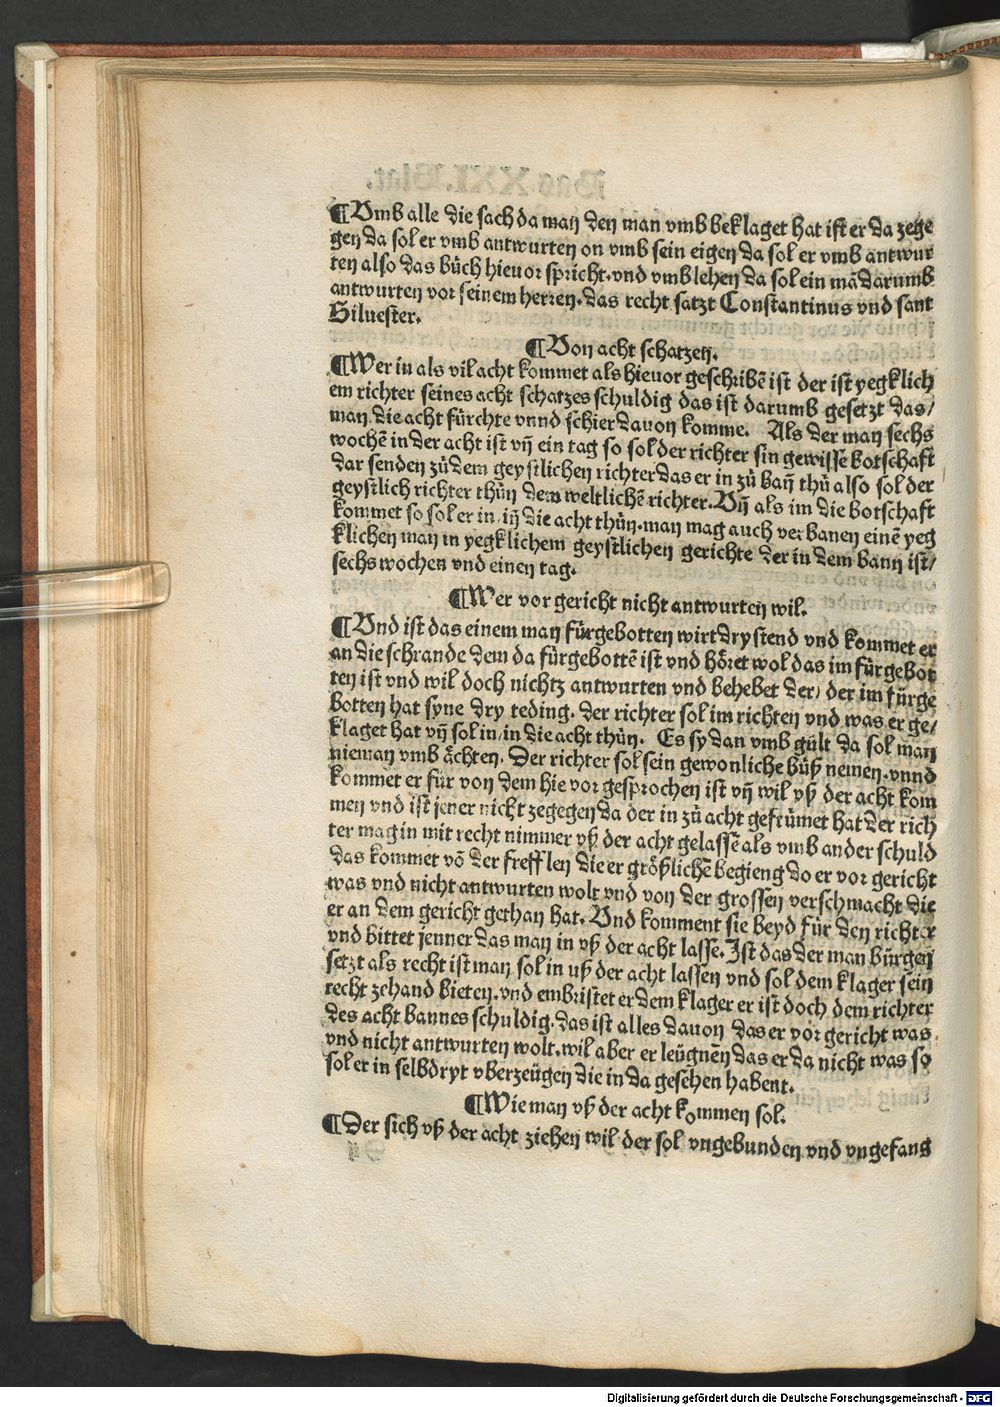 ¶Vmb alle die sach da man den man vmb beklaget hat ist er da zege
gen da sol er vmb antwurten on vmb sein eigen da sol er vmb antwur
ten also das bůch hieuor spricht. vnd vmb lehen da sol ein mā darumb
antwurten vor seinem herren. das recht satzt Constantinus vnd sant
Siluester.
¶Von acht schatzen.
¶Wer in als vil acht kommet als hieuor geschribē ist der ist yegklich
em richter seines acht schatzes schuldig das ist darumb gesetzt das/
man die acht fürchte vnnd schier dauon komme. Als der man sechs
wochē in der acht ist vn̄ ein tag so sol der richter sin gewisse botschaft
dar senden zů dem geystlichen richter das er in zů ban̄ thů also sol der
geystlich richter thůn dem weltlichē richter. Vn̄ als im die botschaft
kommet so sol er in/ in̄ die acht thůn. man mag auch verbanen einē yeg
klichen man in yegklichem geystlichen gerichte der in dem bann ist/
sechs wochen vnd einen tag.
¶Wer vor gericht nicht antwurten wil.
¶Vnd ist das einem man fürgebotten wirt dry stend vnd kommet er
an die schrande dem da fürgebottē ist vnd höret wol das im fürgebot
ten ist vnd wil doch nichtz antwurten vnd behebet der/ der im fürge
botten hat syne dry teding. der richter sol im richten vnd was er ge/
klaget hat vn̄ sol in/ in die acht thůn. Es sy dan vmb gült da sol man
nieman vmb ächten. Der richter sol sein gewonliche bůß nemen. vnnd
kommet er für von dem hie vor gesprochen ist vn̄ wil vß der acht kom
men vnd ist jener nicht zegegen da der in zů acht gefrümet hat der rich
ter mag in mit recht nimmer vß der acht gelassē als vmb ander schuld
das kommet vō der frefflen die er größlichē begieng do er vor gericht
was vnd nicht antwurten wolt vnd von der grossen verschmacht die
er an dem gericht gethan hat. Vnd komment sie beyd für den richter
vnd bittet jenner das man in vß der acht lasse. Ist das der man bürgen
setzt als recht ist man sol in uß der acht lassen vnd sol dem klager sein
recht zehand bieten. vnd embristet er dem klager er ist doch dem richter
des acht bannes schuldig. das ist alles dauon das er vor gericht was.
vnd nicht antwurten wolt. wil aber er leügnen das er da nicht was so
sol er in selbdryt vberzeügen die in da gesehen habent.
¶Wie man vß der acht kommen sol.
¶Der sich vß der acht ziehen wil der sol vngebunden vnd vngefang
Digitalisierung gefördert durch die Deutsche Forschungsgemeinschaft - DFG